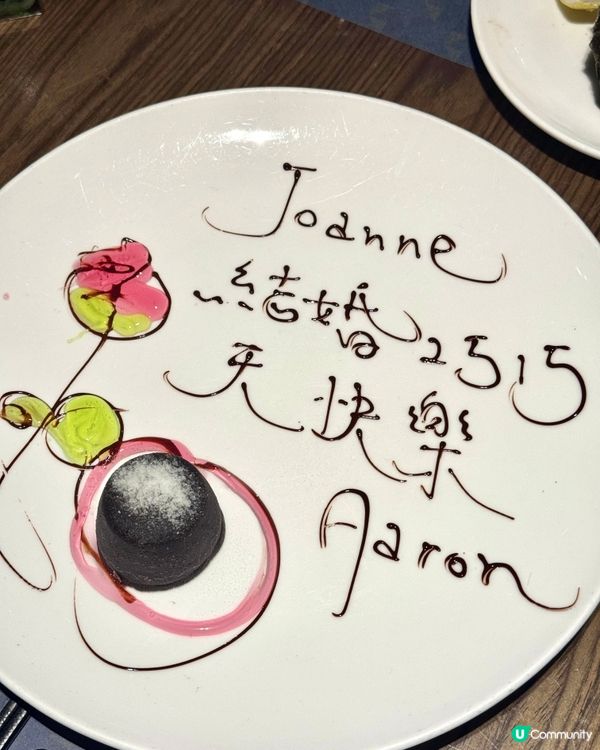 Joanne
結婚2515
天快樂
Aaron
U Community